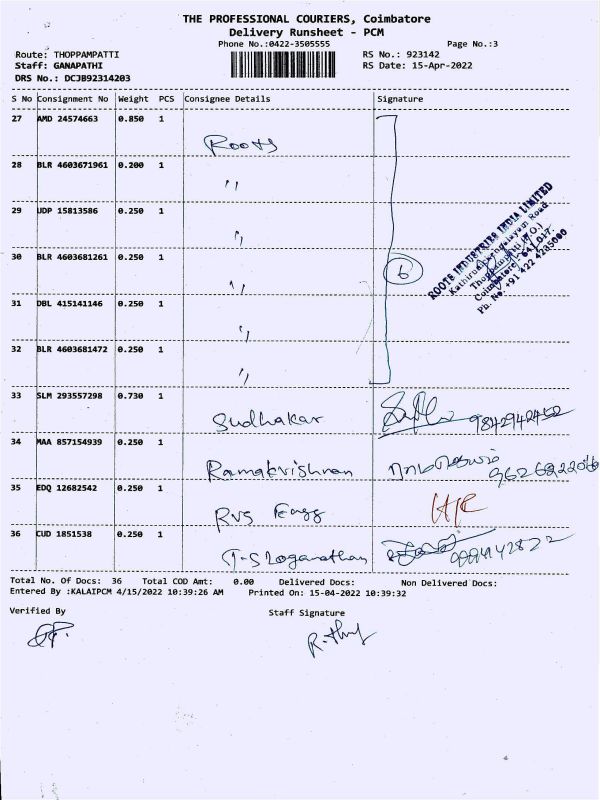 THE PROFESSIONAL COURIERS, Coimbatore
Delivery Runsheet - PCM
Phone No.:0422-3505555 Page No.:3
Route: THOPPAMPATTI RS No.: 923142
Staff: GANAPATHI RS Date: 15-Apr-2022
DRS No.: DCJB92314203
S No Consignment No Weight PCS Consignee Details Signature
27 AMD 24574663 0.850 1
Roots
28 BLR 4603671961 0.200 1
"
29 UDP 15813586 0.250 1
"
30 BLR 4603681261 0.250 1
" 6
31 DBL 415141146 0.250 1
"
32 BLR 4603681472 0.250 1
"
ROOTS INDUSTRIES INDIA LIMITED
Thoppampatti (P.O.)
Coimbatore - 641 017.
Ph. No. +91 422 4205000
33 SLM 293557298 0.730 1
Sudhakar
34 MAA 857154939 0.250 1
Ramakrishnan
35 EDQ 12682542 0.250 1
RVS Eagg
36 CUD 1851538 0.250 1
T-S Loganathan
Total No. Of Docs: 36 Total COD Amt: 0.00 Delivered Docs: Non Delivered Docs:
Entered By :KALAIPCM 4/15/2022 10:39:26 AM Printed On: 15-04-2022 10:39:32
Verified By Staff Signature